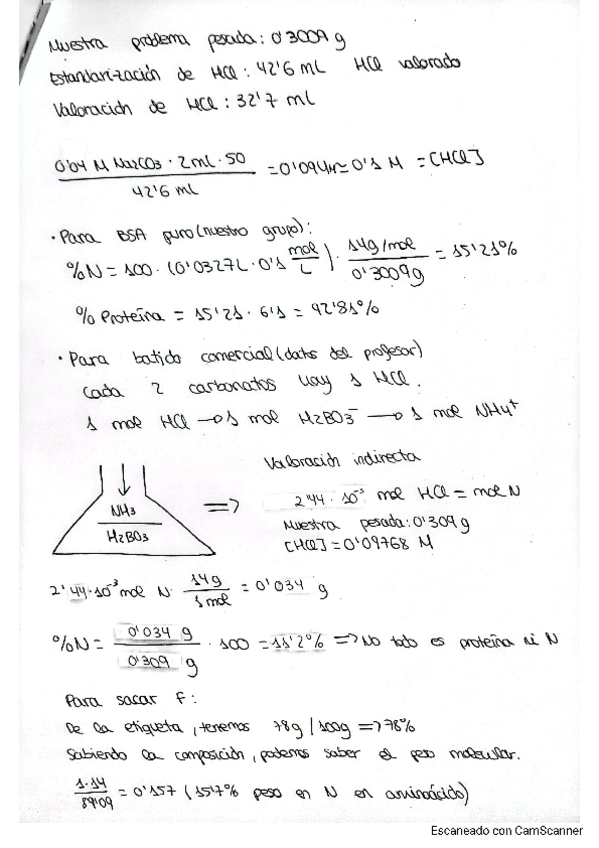 Muestra problema pesada: 0'3009 g
Estandarización de HCl: 42'6 mL HCl valorado
Valoración de HCl: 32'7 mL
0'04 M Na2CO3 · 2mL · 50
= 0'094M ≃ 0'1 M = [HCl]
42'6 mL
· Para BSA puro (nuestro grupo):
%N = 100 · (0'0327L · 0'1 mol/L) · 14g/mol / 0'3009g = 15'21%
% Proteína = 15'21 · 6'1 = 92'81%
· Para batido comercial (datos del profesor)
Cada 2 carbonatos hay 1 HCl.
1 mol HCl → 1 mol H2BO3⁻ → 1 mol NH4⁺
Valoración indirecta
NH3
H2BO3
=> 2'44 · 10⁻³ mol HCl = mol N
Muestra pesada: 0'309 g
[HCl] = 0'09768 M
2'44·10⁻³ mol N · 14g / 1mol = 0'034 g
%N = 0'034 g / 0'309 g · 100 = 11'2% => No todo es proteína ni N
Para sacar F:
De la etiqueta, tenemos 78g / 100g => 78%
Sabiendo la composición, podemos saber el peso molecular.
1·14 / 89'09 = 0'157 (15'7% peso en N en aminoácido)
Escaneado con CamScanner